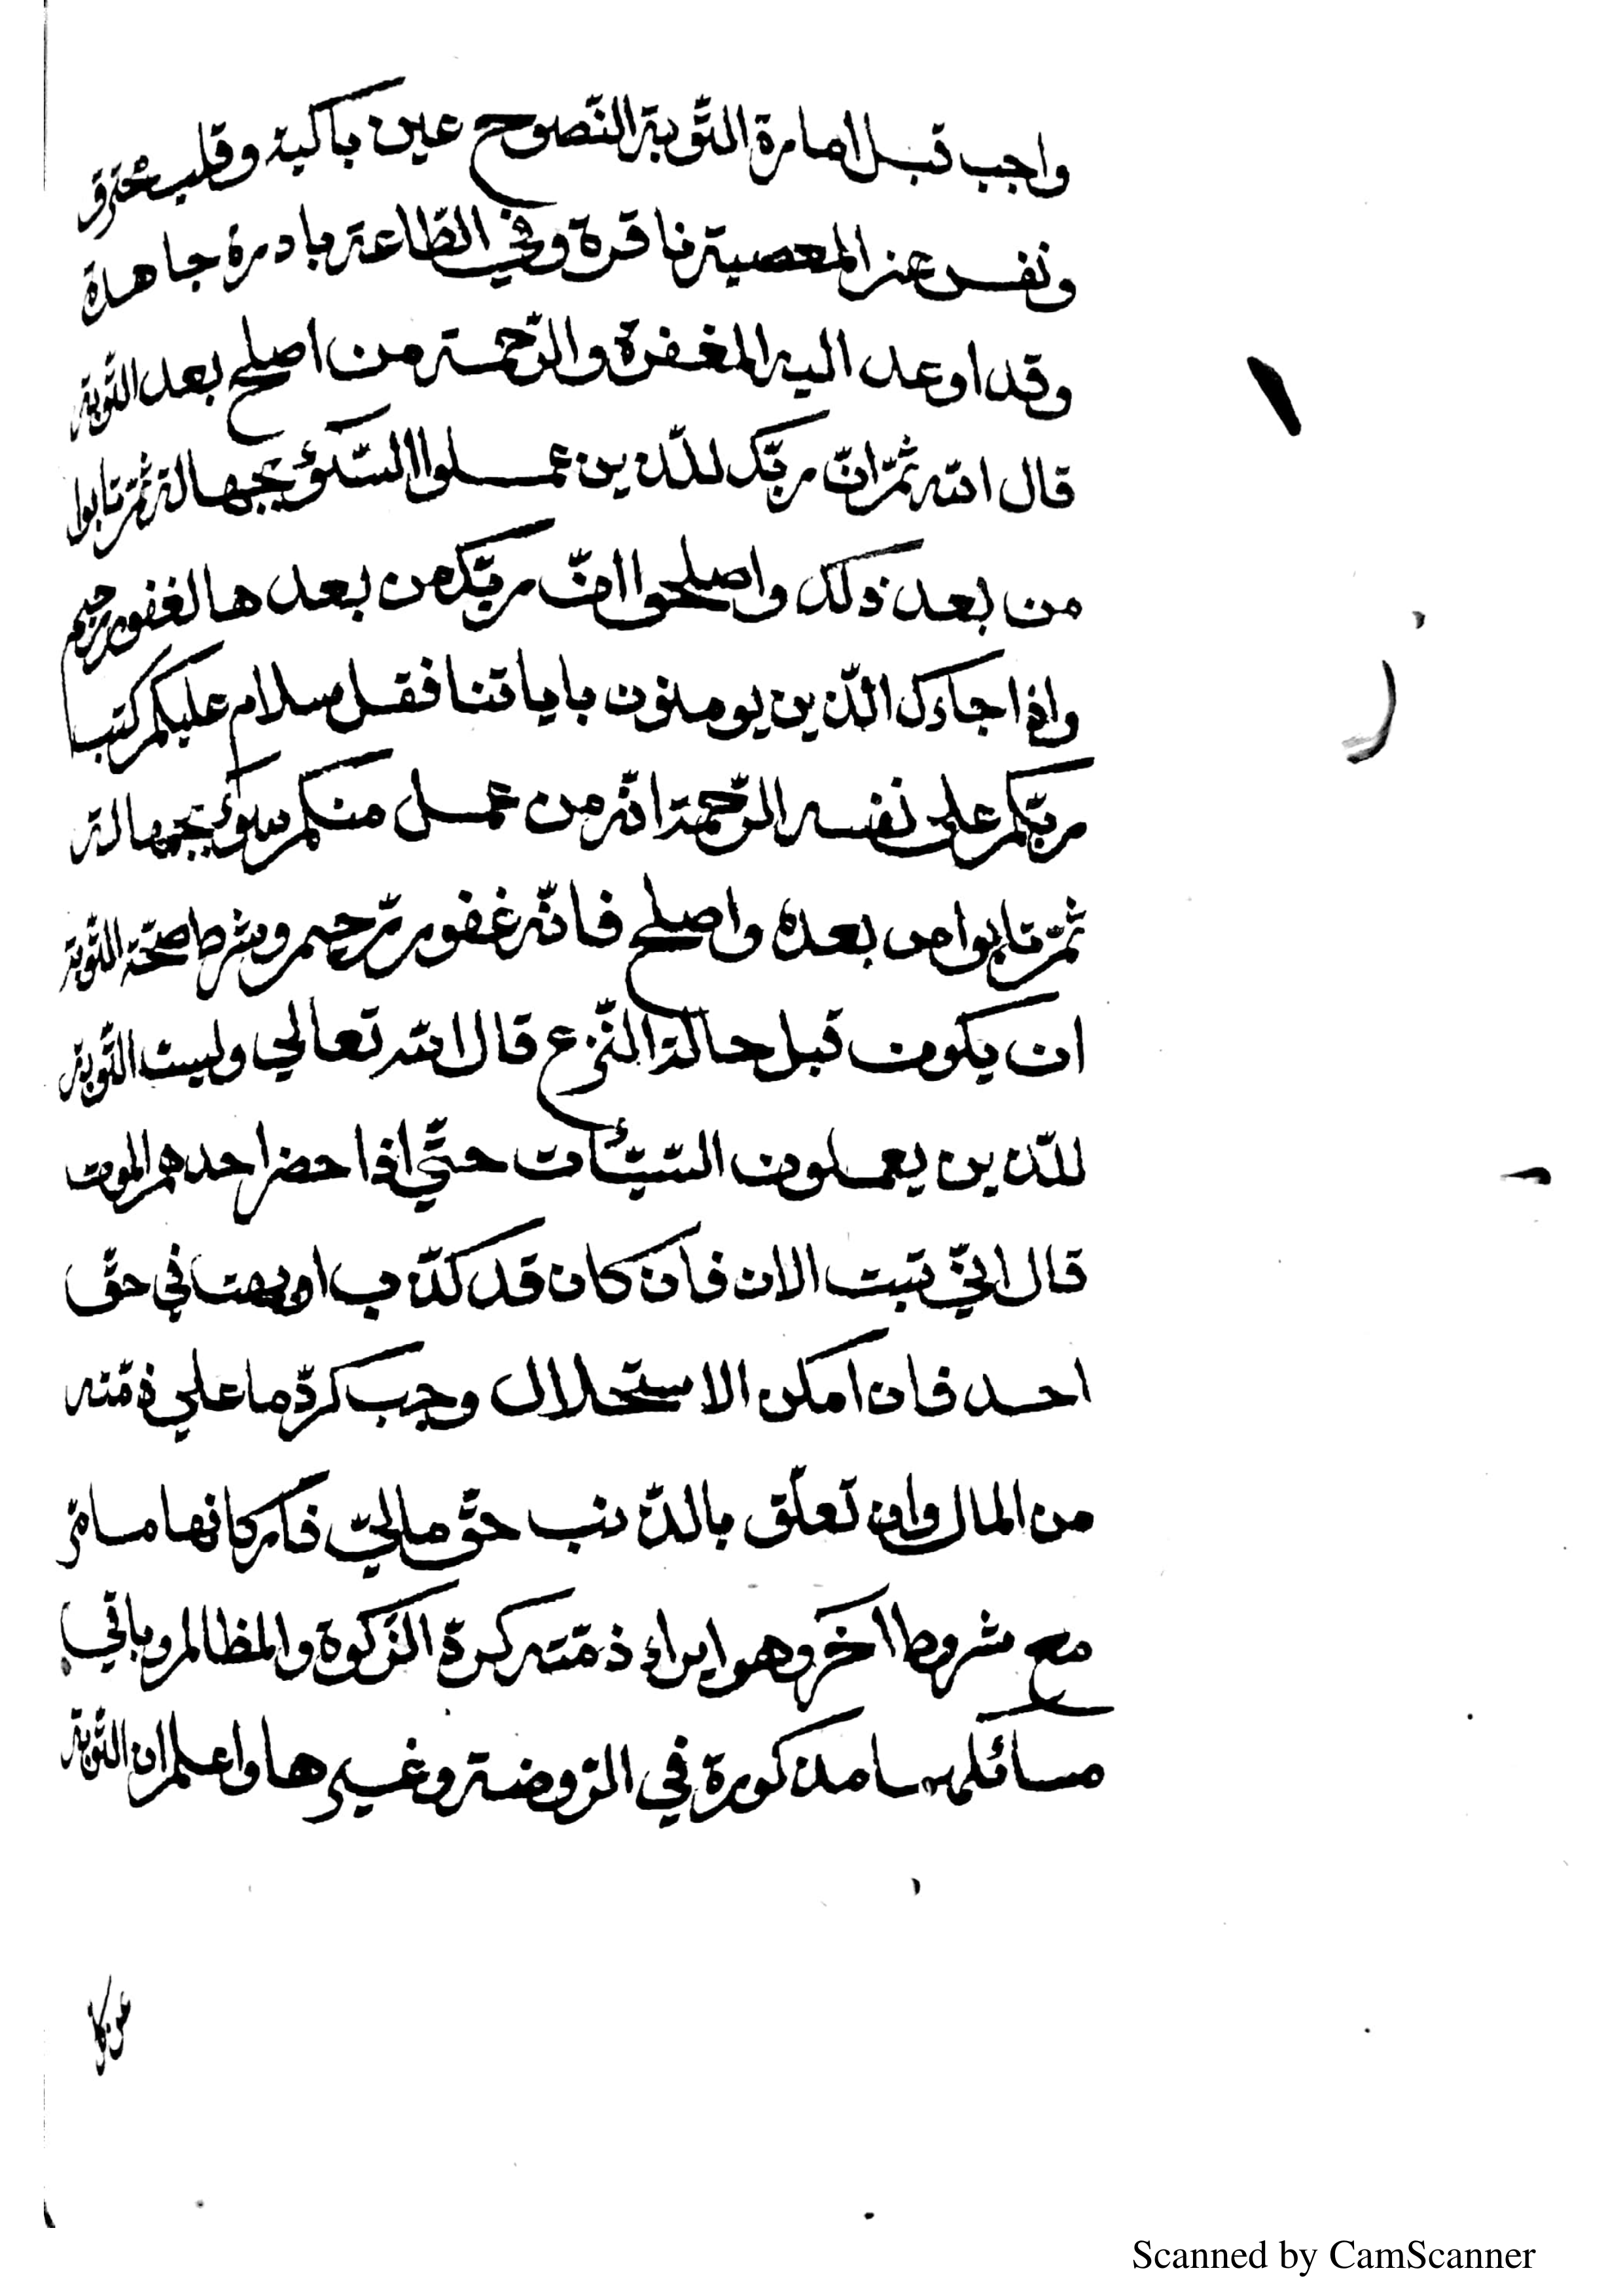 واجب قبل امارة التّوبة النّصوح عين باكية وقلب محترق
ونفس عن المعصية نافرة وفي الطّاعة بادرة جاهدة
وقد اوعد اليه المغفرة والرّحمة من اصلح بعد التّوبة
قال الله ثمّ انّ ربّك للّذين عملوا السّوٓء بجهالة ثمّ تابوا
من بعد ذلك واصلحوا انّ ربّك من بعدها لغفور رحيم
واذا جاءك الّذين يومنون باياتنا فقل سلام عليكم كتب
ربّكم على نفسه الرّحمة انّه من عمل منكم سوٓء بجهالة
ثمّ تابوا من بعده واصلح فانّه غفور رّحيم وشرط صحّة التّوبة
ان يكون قبل حالة النّزع قال الله تعالي وليست التّوبة
للّذين يعملون السّيّئات حتّي اذا حضر احدهم الموت
قال انّي تبت الان فان كان قد كذّب او بهت في حقّ
احد فان امكن الاستحلال وجب كردّ ما علي ذمّته
من المال وان تعلّق بالذّنب حقّ ماليّ فاركانها مامّر
مع شروط اخر وهو ابراء ذمّته كردّ الزّكوة والمظالم وباقي
مسائلهما مذكورة في الرّوضة وغيرها واعلم ان التّوبة
Scanned by CamScanner